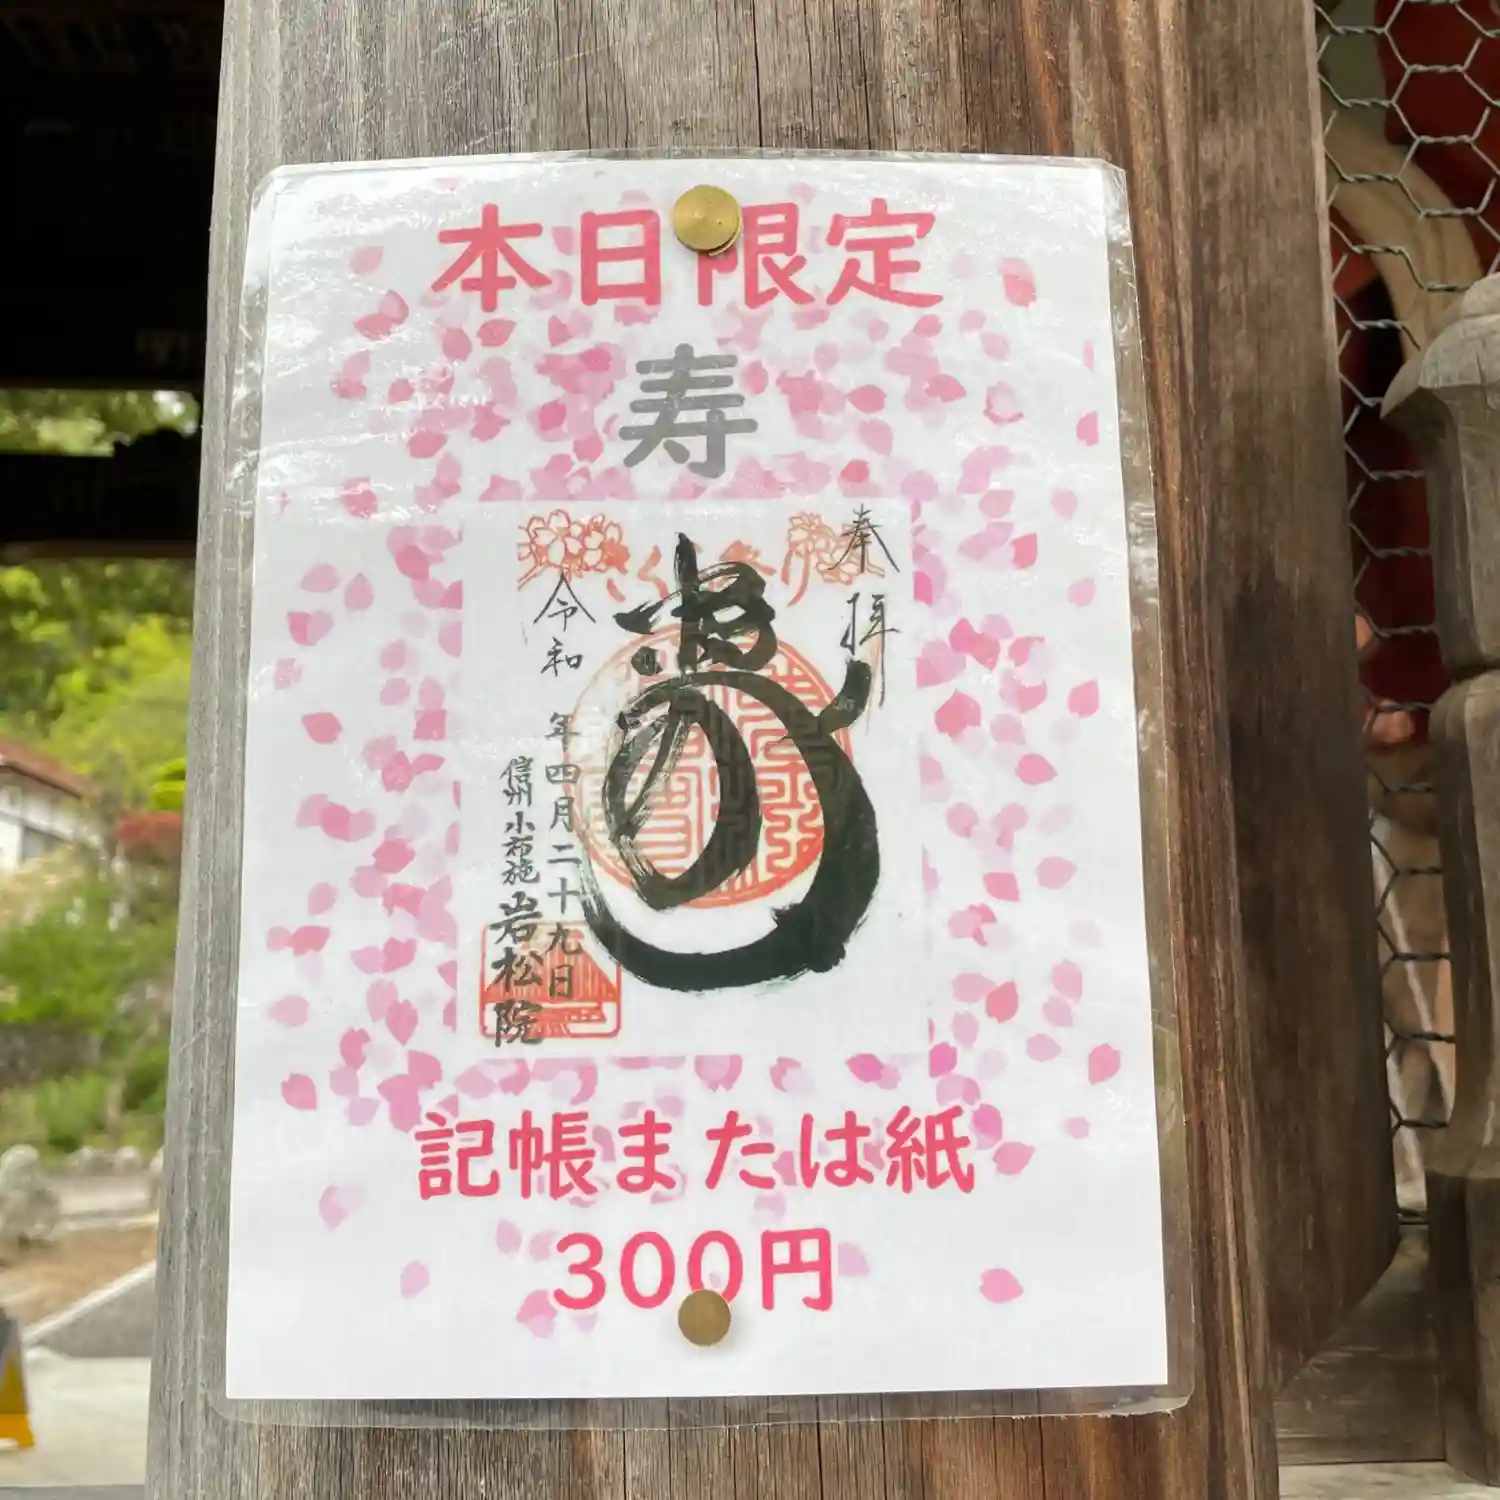 本日限定
寿
奉拝
さくらまつり
寿
令和 年四月二十九日
信州小布施 岩松院
記帳または紙
300円